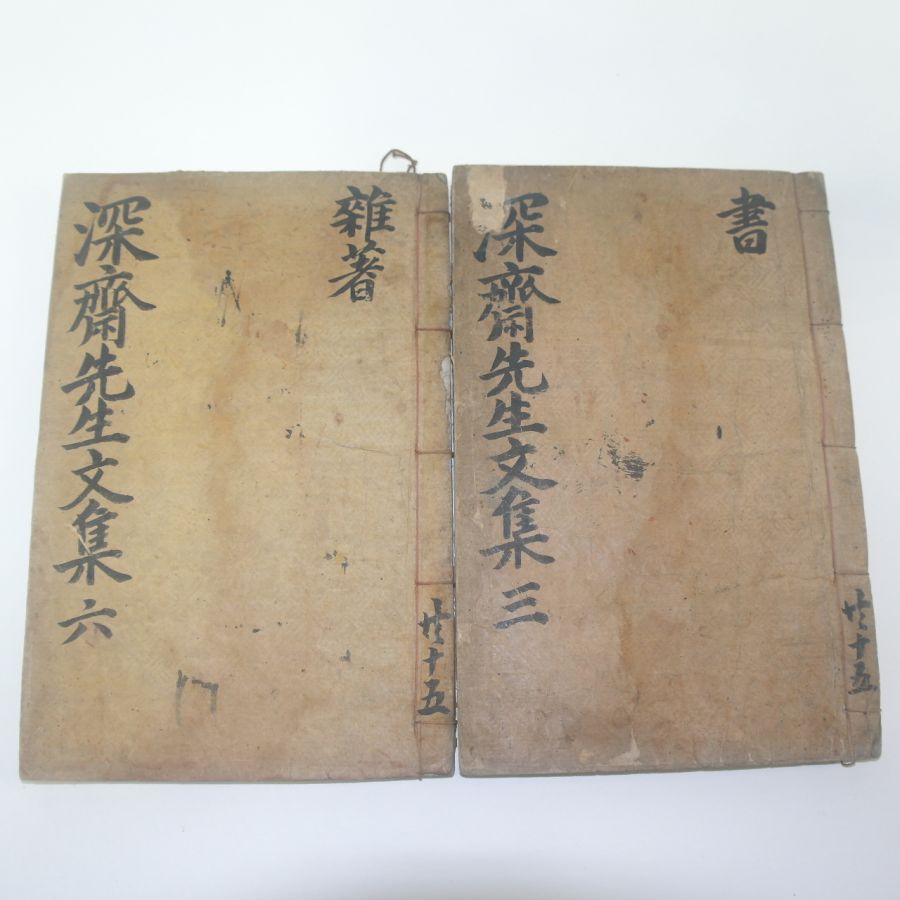 深齋先生文集 六
雜著
共十五
深齋先生文集 三
書
共十五